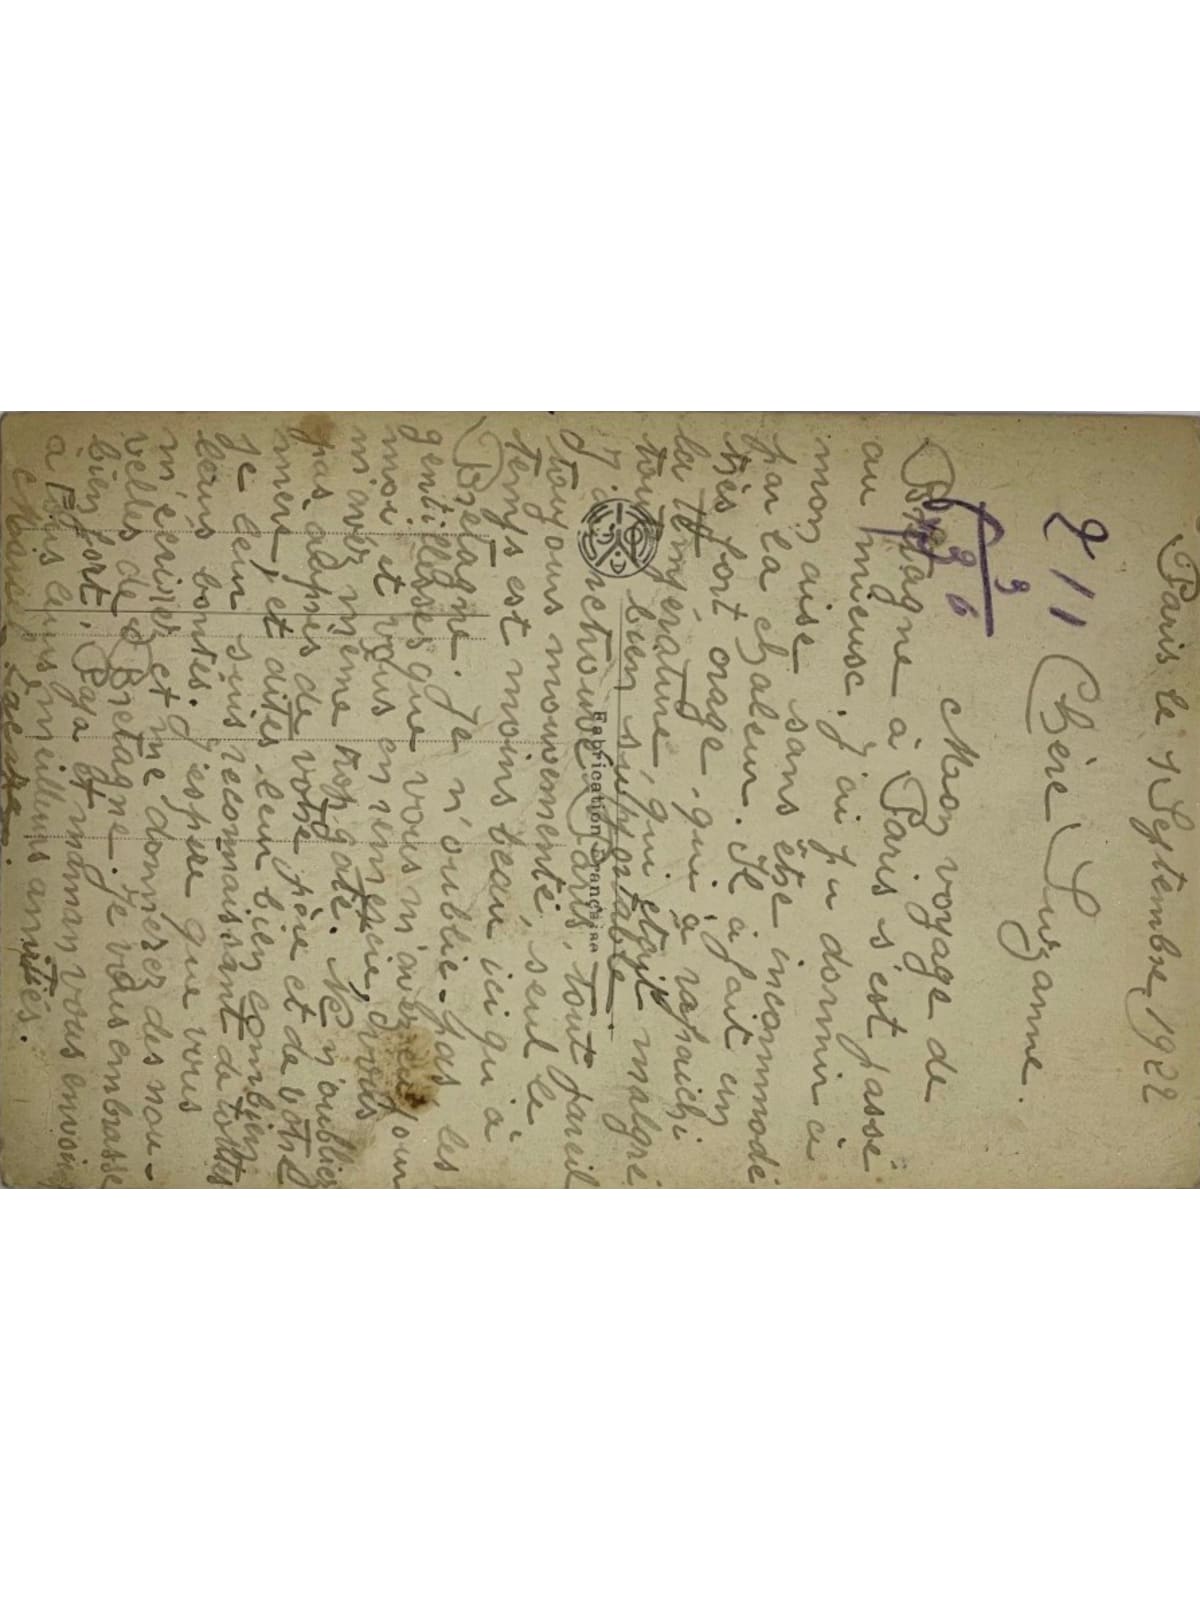 Paris le Septembre 1922
211 Chère Suzanne.
Mon voyage de
Bretagne à Paris s'est passé
au mieux. J'ai pu dormir à
mon aise sans être incommodé
par la chaleur. Il a fait un
très fort orage, qui a rafraichi
la température, qui était malgré
tout bien supportable.
J'ai retrouvé Paris, tout pareil
toujours mouvementé, seul le
temps est moins beau ici qu'à
Bretagne. Je n'oublie pas les
gentillesses que vous m'avez eu pour
moi et vous en remercie, vous
m'avez même trop gâté. Ne n'oubliez
pas auprès de votre père et de votre
mère, et dites leur bien combien
je leur suis reconnaissant de toutes
leurs bontés. J'espère que vous
m'écrirez et me donnerez des nou-
velles de Bretagne. Je vous embrasse
bien fort. Papa et maman vous envoient
à tous leurs meilleurs amitiés.
Marcel
Fabrication Française